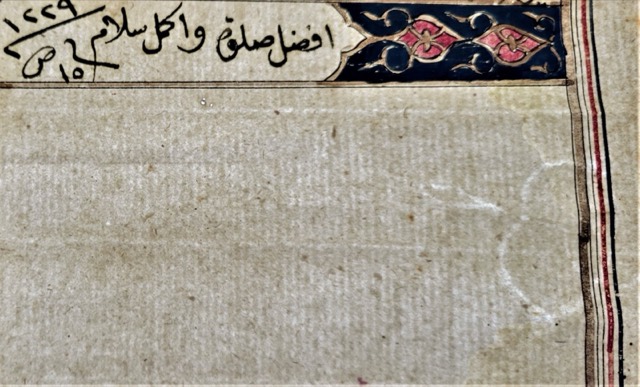 افضل صلوة واكمل سلام
١٢٢٩
ص
١٥